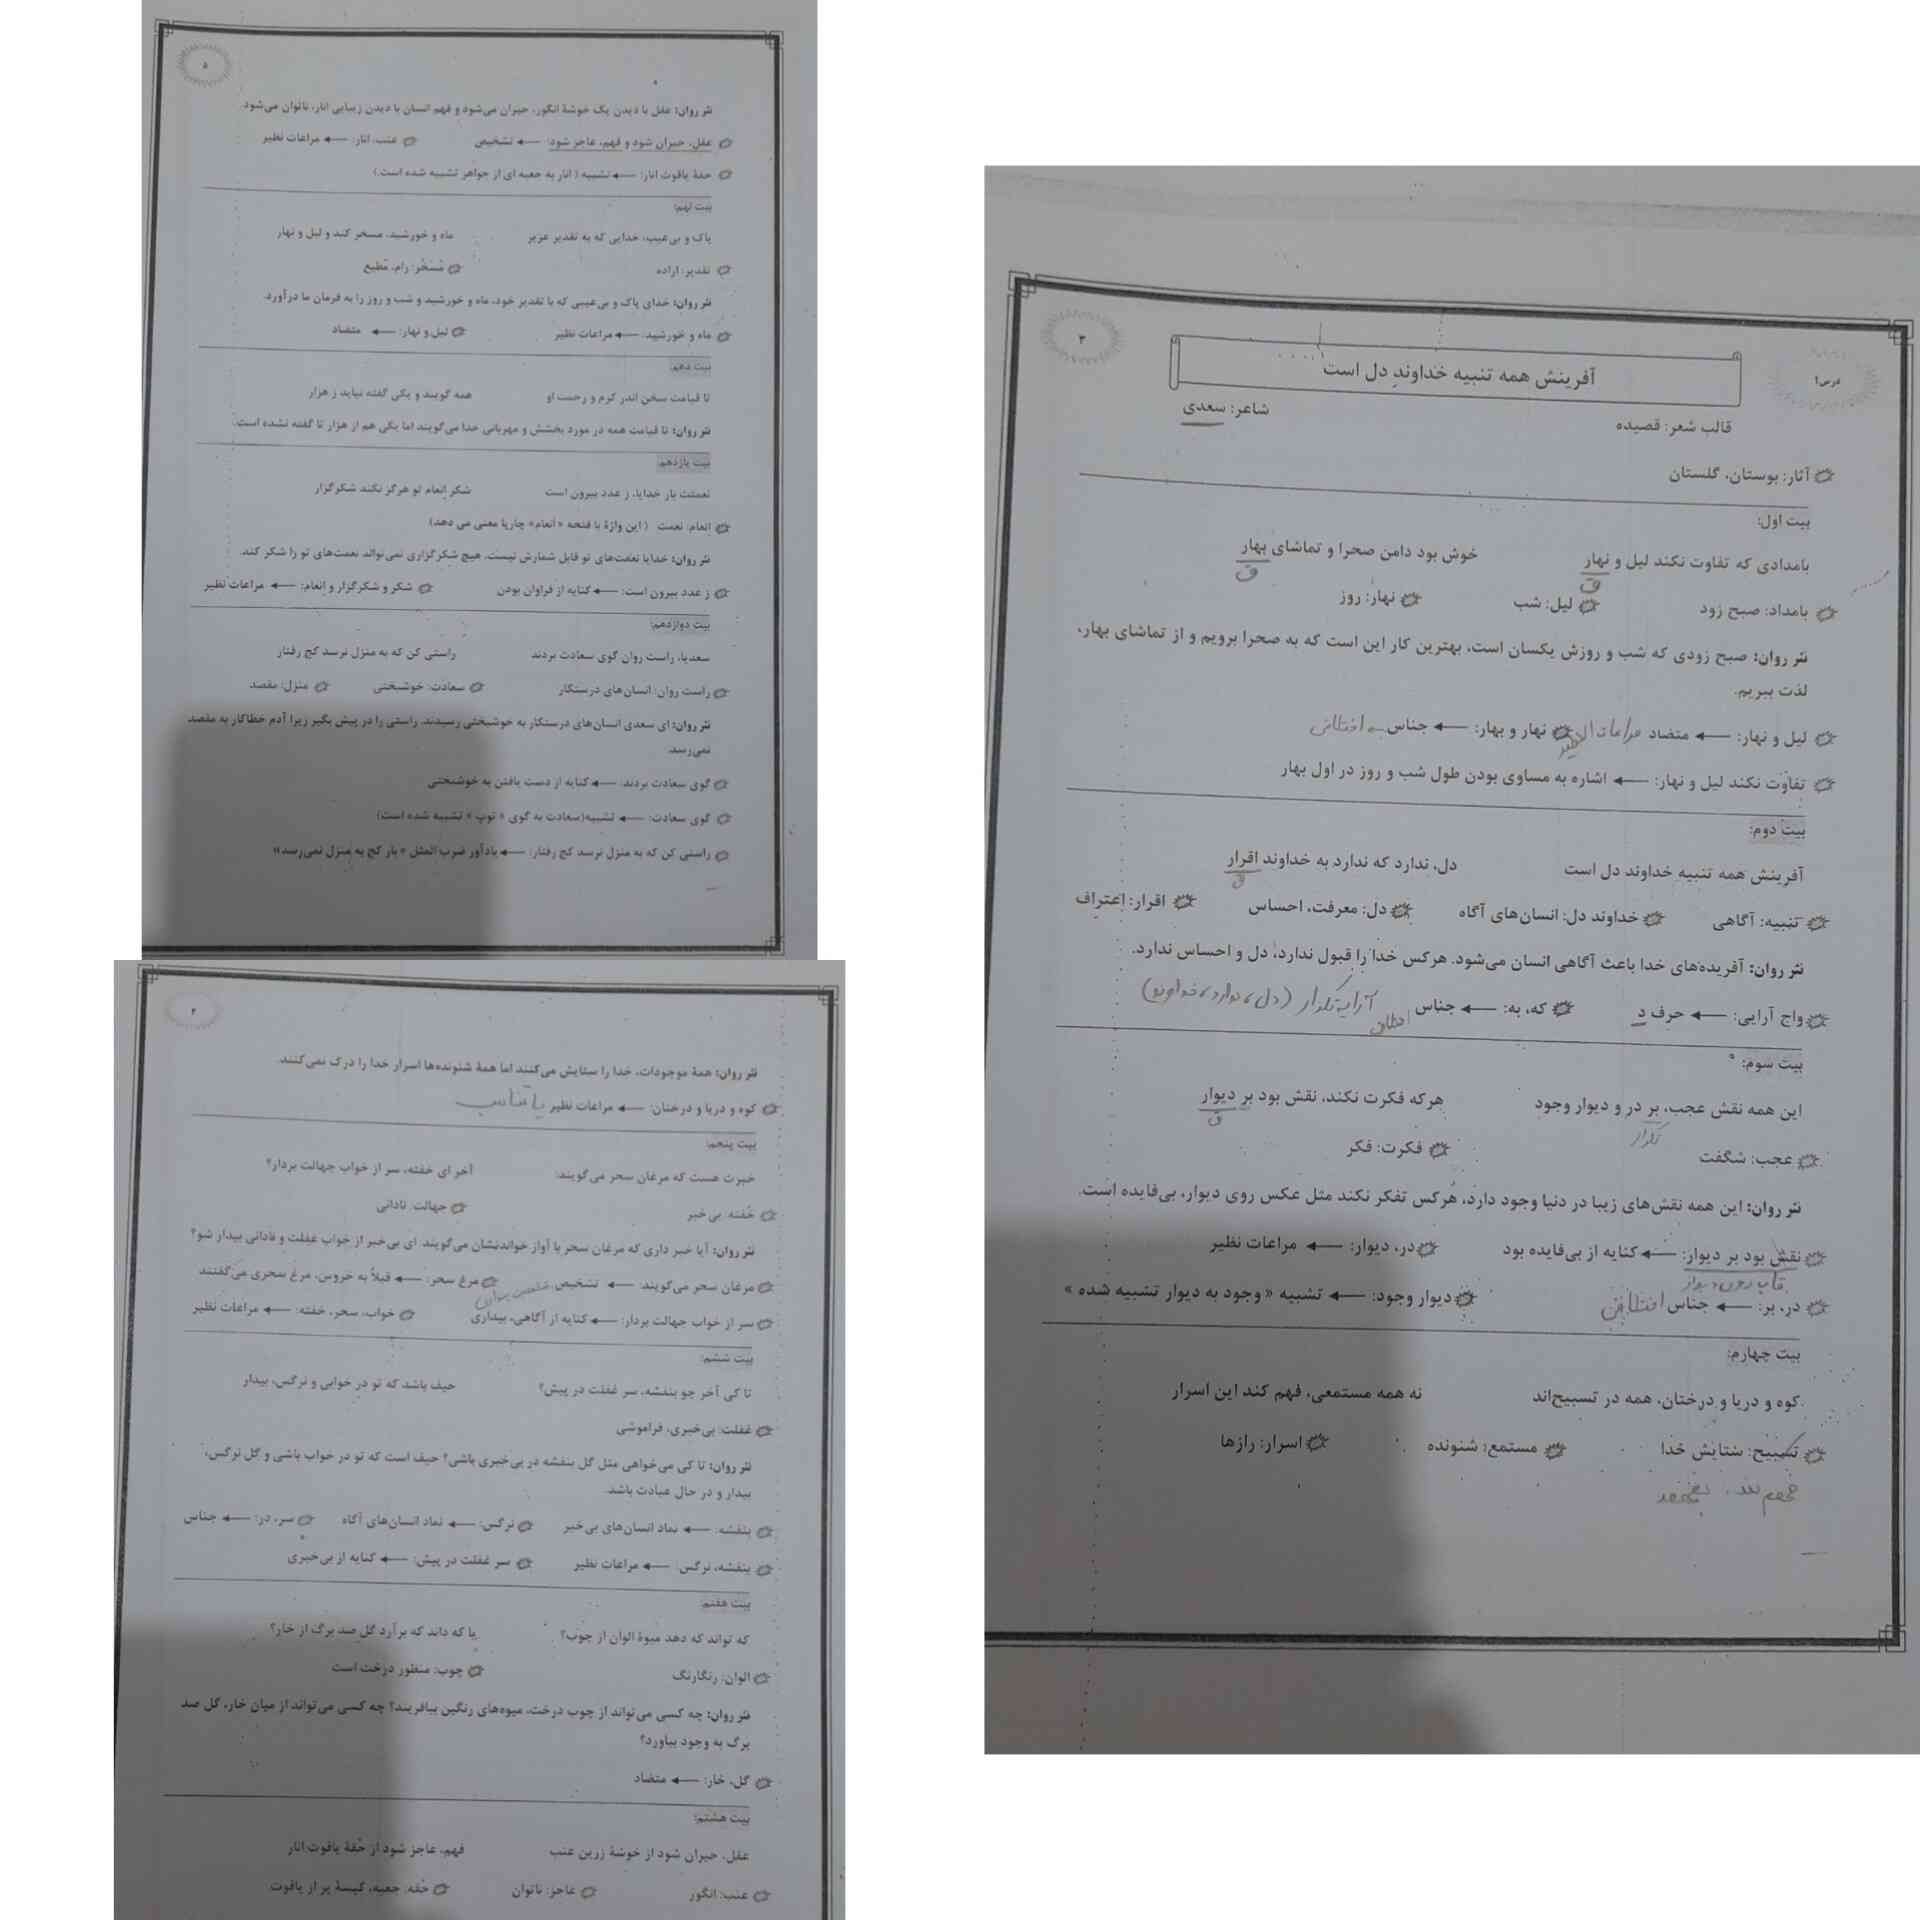 ۳
درس۱
آفرینش همه تنبیه خداوندِ دل است
قالب شعر: قصیده شاعر: سعدی
آثار: بوستان، گلستان
بیت اول:
بامدادی که تفاوت نکند لیل و نهار خوش بود دامن صحرا و تماشای بهار
ق ق
بامداد: صبح زود لیل: شب نهار: روز
نثر روان: صبح زودی که شب و روزش یکسان است، بهترین کار این است که به صحرا برویم و از تماشای بهار،
لذت ببریم.
لیل و نهار: متضاد مراعات النظیر نهار و بهار: جناس اختلافی
تفاوت نکند لیل و نهار: اشاره به مساوی بودن طول شب و روز در اول بهار
بیت دوم:
آفرینش همه تنبیه خداوند دل است دل، ندارد که ندارد به خداوند اقرار
ق
تنبیه: آگاهی خداوند دل: انسان‌های آگاه دل: معرفت، احساس اقرار: اعتراف
نثر روان: آفریده‌های خدا باعث آگاهی انسان می‌شود. هرکس خدا را قبول ندارد، دل و احساس ندارد.
واج آرایی: حرف د که، به: جناس آرایه تکرار (دل، ندارد، خداوند)
بیت سوم:
این همه نقش عجب، بر در و دیوار وجود هرکه فکرت نکند، نقش بود بر دیوار
تکرار ق
عجب: شگفت فکرت: فکر
نثر روان: این همه نقش‌های زیبا در دنیا وجود دارد، هرکس تفکر نکند مثل عکس روی دیوار، بی‌فایده است.
نقش بود بر دیوار: کنایه از بی‌فایده بود در، دیوار: مراعات نظیر
در، بر: جناس اختلافی دیوار وجود: تشبیه « وجود به دیوار تشبیه شده »
بیت چهارم:
کوه و دریا و درختان، همه در تسبیح‌اند نه همه مستمعی، فهم کند این اسرار
تسبیح: ستایش خدا مستمع: شنونده اسرار: رازها
۴
نثر روان: همهٔ موجودات، خدا را ستایش می‌کنند اما همهٔ شنونده‌ها اسرار خدا را درک نمی‌کنند.
کوه و دریا و درختان: مراعات نظیر یا تناسب
بیت پنجم:
خبرت هست که مرغان سحر می‌گویند: آخر ای خفته، سر از خواب جهالت بردار؟
خُفته: بی‌خبر جهالت: نادانی
نثر روان: آیا خبر داری که مرغان سحر با آواز خواندنشان می‌گویند ای بی‌خبر از خواب غفلت و نادانی بیدار شو؟
مرغان سحر می‌گویند: تشخیص مرغ سحر: قبلاً به خروس، مرغ سحری می‌گفتند
سر از خواب جهالت بردار: کنایه از آگاهی، بیداری خواب، سحر، خفته: مراعات نظیر
بیت ششم:
تا کی آخر چو بنفشه، سر غفلت در پیش؟ حیف باشد که تو در خوابی و نرگس، بیدار
غفلت: بی‌خبری، فراموشی
نثر روان: تا کی می‌خواهی مثل گل بنفشه در بی‌خبری باشی؟ حیف است که تو در خواب باشی و گل نرگس،
بیدار و در حال عبادت باشد.
بنفشه: نماد انسان‌های بی‌خبر نرگس: نماد انسان‌های آگاه سر، در: جناس
بنفشه، نرگس: مراعات نظیر سر غفلت در پیش: کنایه از بی‌خبری
بیت هفتم:
که تواند که دهد میوهٔ الوان از چوب؟ یا که داند که برآرد گل صد برگ از خار؟
الوان: رنگارنگ چوب: منظور درخت است
نثر روان: چه کسی می‌تواند از چوب درخت، میوه‌های رنگین بیافریند؟ چه کسی می‌تواند از میان خار، گل صد
برگ به وجود بیاورد؟
گل، خار: متضاد
بیت هشتم:
عقل، حیران شود از خوشهٔ زرین عنب فهم، عاجز شود از حُقهٔ یاقوت انار
عنب: انگور عاجز: ناتوان حُقه: جعبه، کیسهٔ پر از یاقوت
۵
نثر روان: عقل با دیدن یک خوشهٔ انگور، حیران می‌شود و فهم انسان با دیدن زیبایی انار، ناتوان می‌شود.
عقل، حیران شود و فهم، عاجز شود: تشخیص عنب، انار: مراعات نظیر
حقهٔ یاقوت انار: تشبیه ( انار به جعبه ای از جواهر تشبیه شده است.)
بیت نهم:
پاک و بی‌عیب، خدایی که به تقدیر عزیز ماه و خورشید، مسخر کند و لیل و نهار
تقدیر: اراده مُسَخَّر: رام، مطیع
نثر روان: خدای پاک و بی‌عیبی که با تقدیر خود، ماه و خورشید و شب و روز را به فرمان ما درآورد.
ماه و خورشید: مراعات نظیر لیل و نهار: متضاد
بیت دهم:
تا قیامت سخن اندر کرم و رحمت او همه گویند و یکی گفته نیاید ز هزار
نثر روان: تا قیامت همه در مورد بخشش و مهربانی خدا می‌گویند اما یکی هم از هزار تا گفته نشده است.
بیت یازدهم:
نعمتت بار خدایا، ز عدد بیرون است شکر اِنعام تو هرگز نکند شکرگزار
اِنعام: نعمت ( این واژهٔ با فتحه « اَنعام» چارپا معنی می دهد)
نثر روان: خدایا نعمت‌های تو قابل شمارش نیست، هیچ شکرگزاری نمی‌تواند نعمت‌های تو را شکر کند.
ز عدد بیرون است: کنایه از فراوان بودن شکر و شکرگزار و اِنعام: مراعات نظیر
بیت دوازدهم:
سعدیا، راست روان گوی سعادت بردند راستی کن که به منزل نرسد کج رفتار
راست روان: انسان‌های درستکار سعادت: خوشبختی منزل: مقصد
نثر روان: ای سعدی انسان‌های درستکار به خوشبختی رسیدند. راستی را در پیش بگیر زیرا آدم خطاکار به مقصد
نمی‌رسد.
گوی سعادت بردند: کنایه از دست یافتن به خوشبختی
گوی سعادت: تشبیه(سعادت به گوی « توپ » تشبیه شده است)
راستی کن که به منزل نرسد کج رفتار: یادآور ضرب المثل « بار کج به منزل نمی‌رسد»